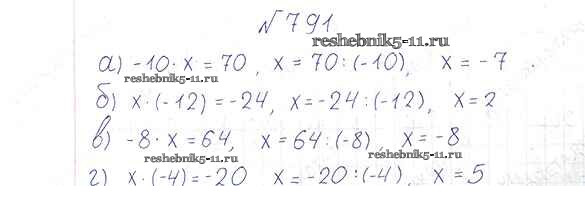 № 791.
reshebnik5-11.ru
а) -10 · x = 70, x = 70 : (-10), x = -7.
reshebnik5-11.ru
б) x · (-12) = -24, x = -24 : (-12), x = 2
в) -8 · x = 64, x = 64 : (-8), x = -8
reshebnik5-11.ru reshebnik5-11.ru
г) x · (-4) = -20 x = -20 : (-4), x = 5